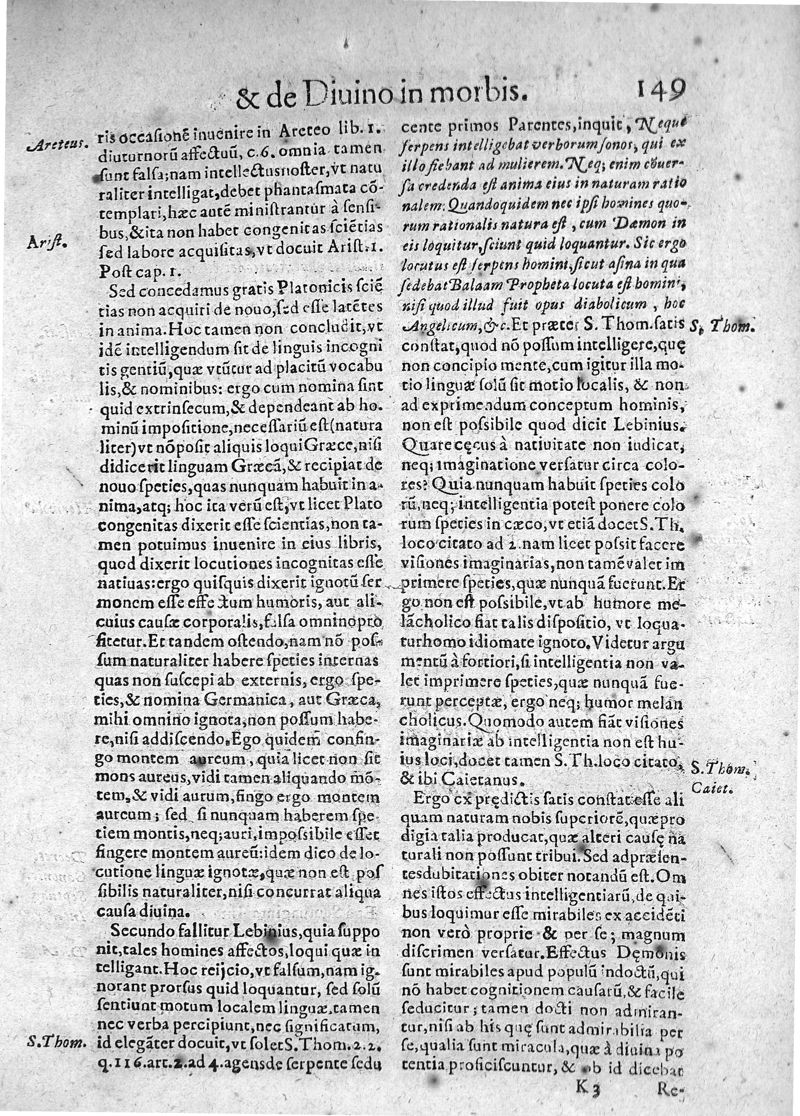 & de Diuino in morbis. 149
Areteus.
ris occasionē inuenire in Areteo lib. 1.
diuturnorū affectuū, c.6. omnia tamen
sunt falsa; nam intellectusnoster, vt natu
raliter intelligat, debet phantasmata cō-
templari, hæc autē ministrantur à sensi-
bus, & ita non habet congenitas sciētias
Arist.
sed labore acquisitas, vt docuit Arist. 1.
Post cap. 1.
Sed concedamus gratis Platonicis sciē
tias non acquiri de nouo, sed esse latētes
in anima. Hoc tamen non concludit, vt
idē intelligendum sit de linguis incogni
tis gentiū, quæ vtūtur ad placitū vocabu
lis, & nominibus: ergo cum nomina sint
quid extrinsecum, & dependeant ab ho-
minū impositione, necessariū est (natura
liter) vt nō posit aliquis loqui Græce, nisi
didicerit linguam Græcā, & recipiat de
nouo species, quas nunquam habuit in a-
nima, atq; hoc ita verū est, vt licet Plato
congenitas dixerit esse scientias, non ta-
men potuimus inuenire in eius libris,
quod dixerit locutiones incognitas esse
natiuas: ergo quisquis dixerit ignotū ser
monem esse effectum humoris, aut ali-
cuius causæ corporalis, falsa omninopro
fitetur. Et tandem ostendo, nam nō pos-
sum naturaliter habere species internas
quas non suscepi ab externis, ergo spe-
ties, & nomina Germanica, aut Græca,
mihi omnino ignota, non possum habe-
re, nisi addiscendo. Ego quidem confin-
go montem aureum, quia licet non sit
mons aureus, vidi tamen aliquando mō-
tem, & vidi aurum, fingo ergo montem
aureum; sed si nunquam haberem spe-
tiem montis, neq; auri, impossibile esset
fingere montem aureū: idem dico de lo-
cutione linguæ ignotæ, quæ non est pos
sibilis naturaliter, nisi concurrat aliqua
causa diuina.
Secundo fallitur Lebinius, quia suppo
nit, tales homines affectos, loqui quæ in
telligant. Hoc reijcio, vt falsum, nam ig-
norant prorsus quid loquantur, sed solū
sentiunt motum localem linguæ, tamen
nec verba percipiunt, nec significatum,
S. Thom.
id elegāter docuit, vt solet S. Thom. 2. 2.
q. 116 art. 2. ad 4. agens de serpente sedu
cente primos Parentes, inquit, Neque
serpens intelligebat verborum sonos, qui ex
illo fiebant ad mulierem. Neq; enim cōuer-
sa credenda est anima eius in naturam ratio
nalem. Quandoquidem nec ipsi homines quo-
rum rationalis natura est, cum Dæmon in
eis loquitur, sciunt quid loquantur. Sic ergo
locutus est serpens homini, sicut asina in qua
sedebat Balaam Propheta locuta est homini,
nisi quod illud fuit opus diabolicum, hoc
Angelicum, &c. Et præter S. Thom. satis
S. Thom.
constat, quod nō possum intelligere, quę
non concipio mente, cum igitur illa mo-
tio linguæ solū sit motio localis, & non
ad exprimendum conceptum hominis,
non est possibile quod dicit Lebinius.
Quare cęcus à natiuitate non iudicat,
neq; imaginatione versatur circa colo-
res? Quia nunquam habuit species colo
rū, neq; intelligentia potest ponere colo
rum species in cæco, vt etiā docet S. Th.
loco citato ad 2. nam licet possit facere
visiones imaginarias, non tamē valet im
primere species, quæ nunquā fuerunt. Er
go non est possibile, vt ab humore me-
lācholico fiat talis dispositio, vt loqua-
tur homo idiomate ignoto. Videtur argu
mentū à fortiori, si intelligentia non va-
let imprimere species, quæ nunquā fue-
runt perceptæ, ergo neq; humor melan
cholicus. Quomodo autem fiāt visiones
imaginariæ ab intelligentia non est hu-
ius loci, docet tamen S. Th. loco citato,
S. Thom.
& ibi Caietanus.
Caiet.
Ergo ex prędictis satis constat esse ali
quam naturam nobis superiorē, quæ pro
digia talia producat, quæ alteri causę na
turali non possunt tribui. Sed ad præsen-
tes dubitationes obiter notandū est. Om
nes istos effectus intelligentiarū, de qui-
bus loquimur esse mirabiles ex accidēti
non verò proprie & per se; magnum
discrimen versatur. Effectus Dęmonis
sunt mirabiles apud populū indoctū, qui
nō habet cognitionem causarū, & facile
seducitur; tamen docti non admiran-
tur, nisi ab his quę sunt admirabilia per
se, qualia sunt miracula, quæ à diuina po
tentia proficiscuntur, & ob id dicebat
K 3 Re-